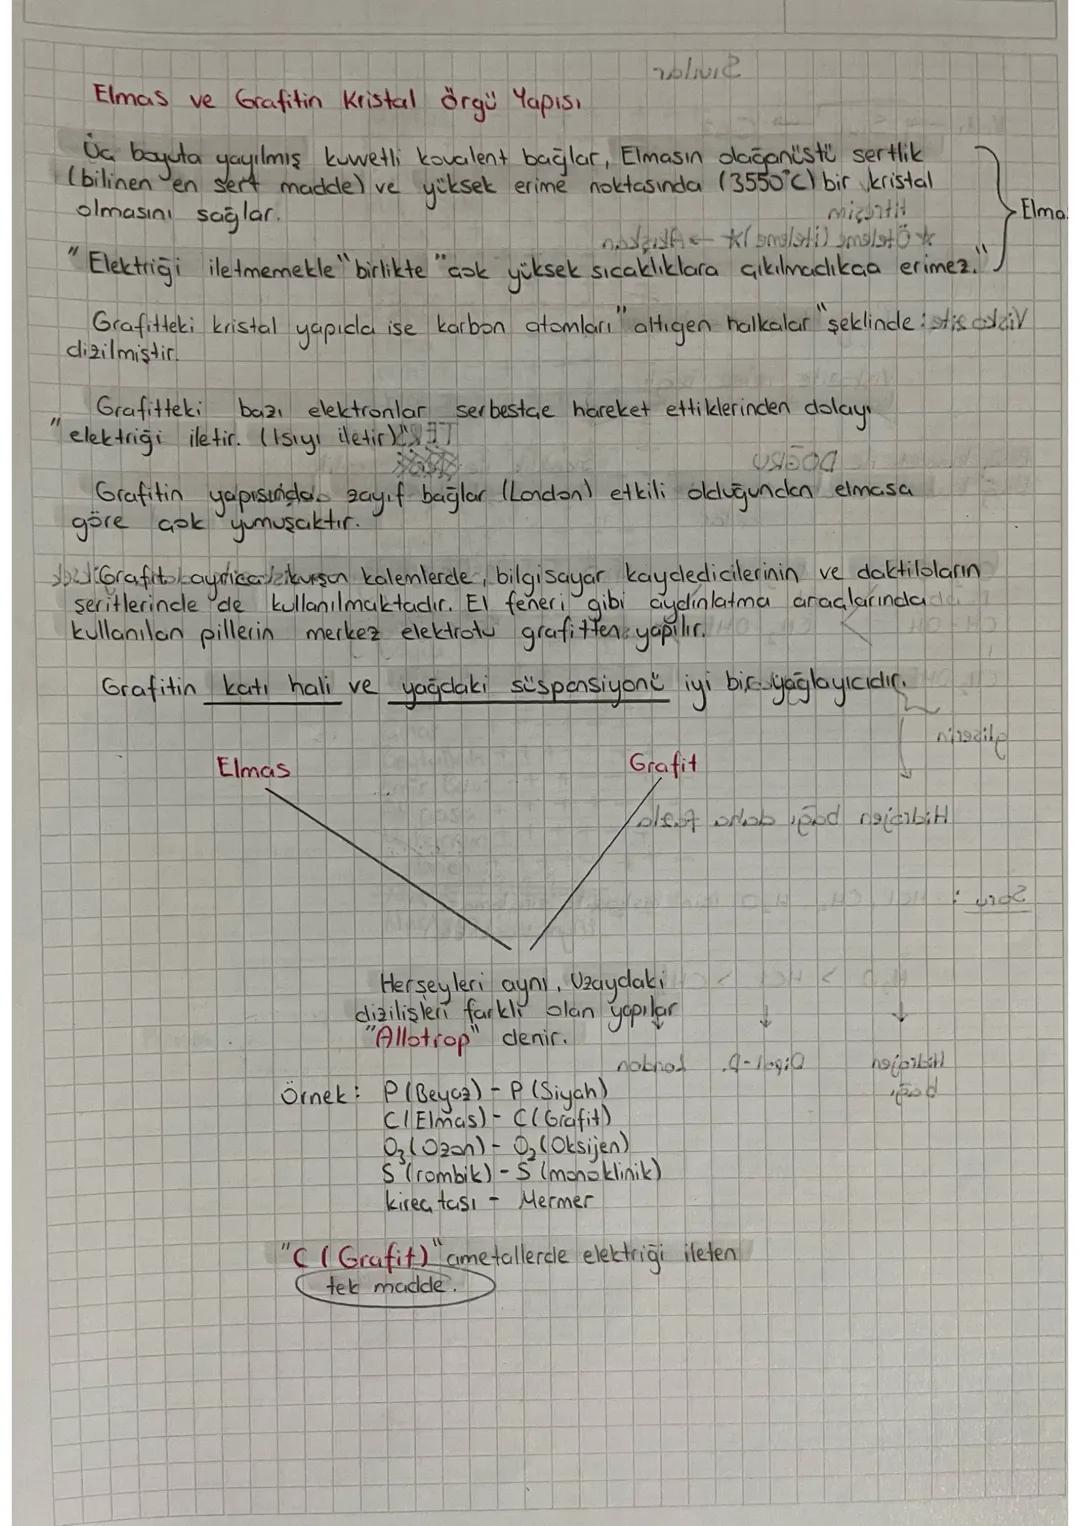 Sıvılar
Elmas ve Grafitin Kristal Örgü Yapısı
Üç boyuta yayılmış kuvvetli kovalent bağlar, Elmasın olağanüstü sertlik
(bilinen en sert madde) ve yüksek erime noktasında (3550°C) bir kristal
olmasını sağlar.
Elmas
titreşim
* Öteleme (iteleme)* → Akışkan
"Elektriği iletmemekle" birlikte "çok yüksek sıcaklıklara çıkılmadıkça erimez."
Grafitteki kristal yapıda ise karbon atomları "altıgen halkalar" şeklinde
Viskozite:
dizilmiştir.
Grafitteki bazı elektronlar serbestçe hareket ettiklerinden dolayı
"elektriği iletir. (Isıyı iletir)"
DOĞRU
Grafitin yapısında zayıf bağlar (London) etkili olduğundan elmasa
göre çok yumuşaktır.
Grafit ayrıca kurşun kalemlerde, bilgisayar kaydedicilerinin ve daktiloların
şeritlerinde de kullanılmaktadır. El feneri gibi aydınlatma araçlarında
kullanılan pillerin merkez elektrotu grafitten yapılır.
Grafitin katı hali ve yağdaki süspansiyonu iyi bir yağlayıcıdır.
gliserin
Elmas Grafit
Hidrojen bağı daha fazla
Soru :
Herşeyleri aynı, Uzaydaki
dizilişleri farklı olan yapılar
"Allotrop" denir.
Hidrojen bağı
Dipol-D.
London
Örnek: P (Beyaz) - P (Siyah)
C (Elmas) - C (Grafit)
O₃ (Ozon) - O₂ (Oksijen)
S (rombik) - S (monoklinik)
kireç taşı - Mermer
"C (Grafit)" ametallerde elektriği ileten
tek madde.